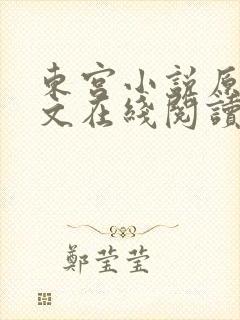 東宮小說原
文在綫閱讀
鄭莹莹